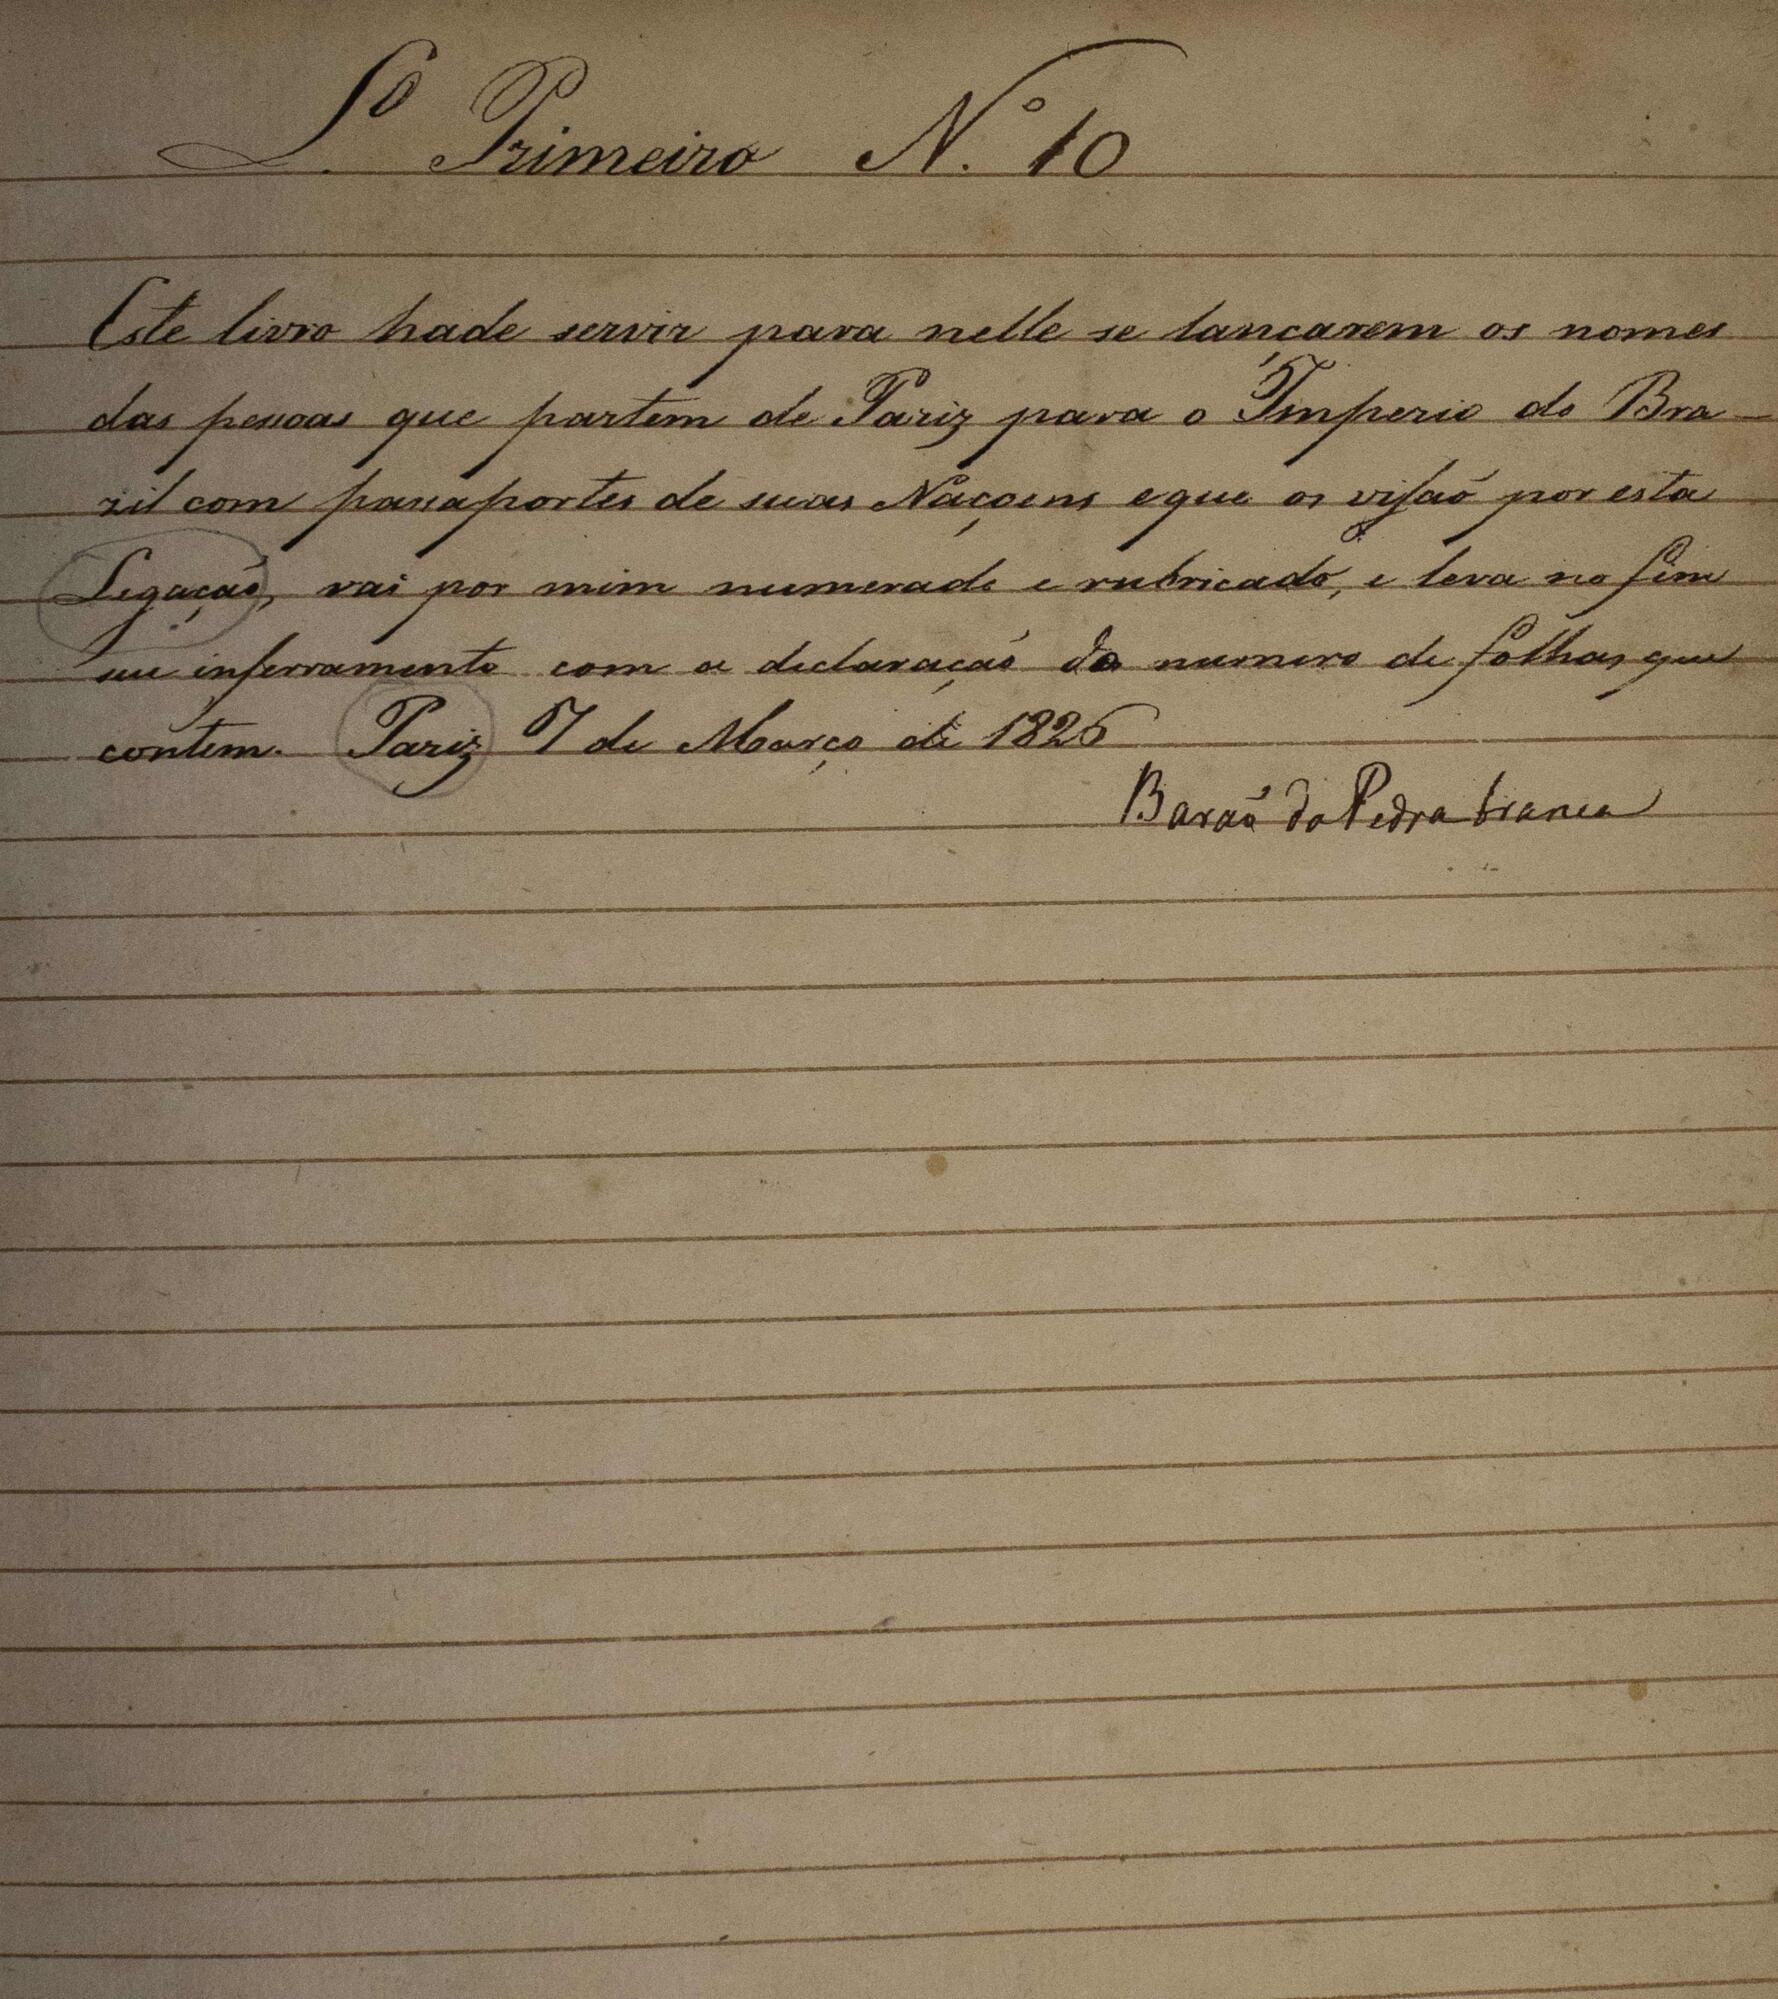 L.º Primeiro N.º 10
Este livro hade servir para nelle se lançarem os nomes
das pessoas que partem de Pariz para o Imperio do Bra-
zil com passaportes de suas Naçoens e que os visaó por esta
Legaçaó, vai por mim numerado e rubricado, e leva no fim
seu inserramento com a declaraçaó do numero de folhas que
contem. Pariz 7 de Março de 1826
Baraó da Pedra branca